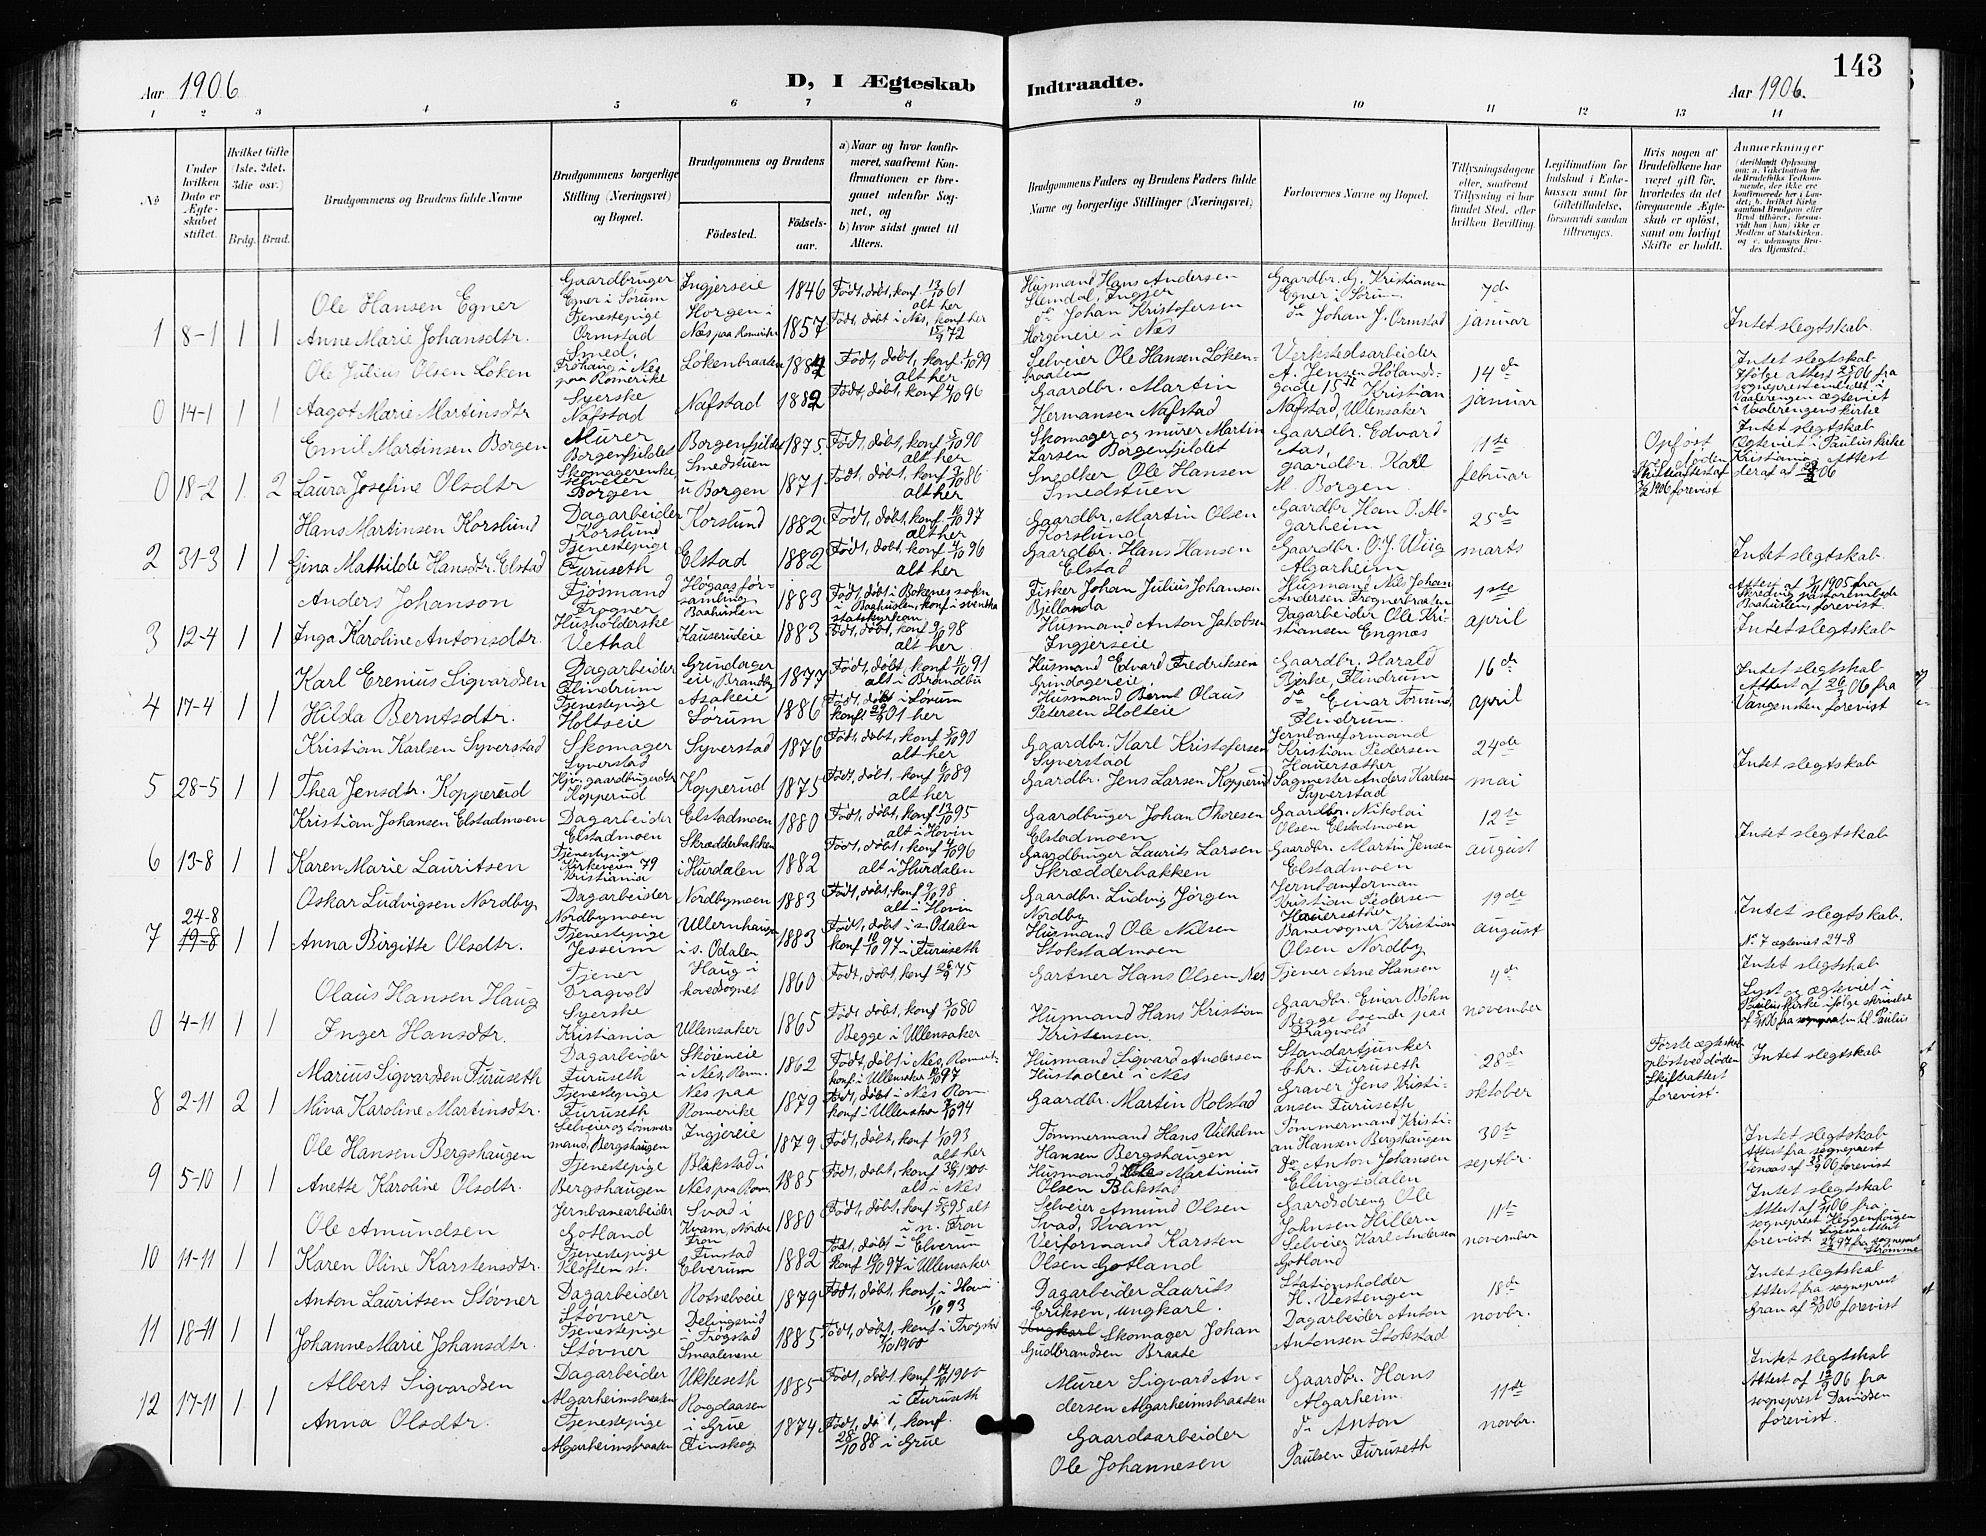 143
Aar 1906
D, I Ægteskab
Indtraadte.
Aar 1906.
1 2 3 4 5 6 7 8 9 10 11 12 13 14
No
Under hvilken Dato er Ægteskabet stiftet.
Hvilket Gifte (1ste. 2det. 3die osv.)
Brdg. Brud.
Brudgommens og Brudens fulde Navne
Brudgommens borgerlige Stilling (Næringsvei) og Bopæl.
Brudgommens og Brudens
Fødested.
Fødselsaar.
a) Naar og hvor konfirmeret, saafremt Konfirmationen er foregaaet udenfor Sognet, og
b) hvor sidst gaaet til Alters.
Brudgommens Faders og Brudens Faders fulde Navne og borgerlige Stillinger (Næringsvei)
Forlovernes Navne og Bopæl.
Tillysningsdagene eller, saafremt Tillysning ei har fundet Sted, efter hvilken Bevilling.
Legitimation for Indskud i Enkekassen samt for Giftetilladelse, forsaavidt saadan tiltrænges.
Hvis nogen af Brudefolkene har været gift før, hvorledes da det foregaaende Ægteskab er opløst, samt om lovligt Skifte er holdt.
Anmerkninger
Ole Hansen Egner Gaardbruger Egner i Sørum Ingjerseie 1846 Født, døbt, konf. 13/10 61 alt her Husmand Hans Andersen Stemdal, Ingjer Gaardbr. G. Kristiansen Egner i Sørum 7de
1 8-1 1 1 Anne Marie Johansdtr. Tjenestepige Ormstad Horgen i Nes paa Romerike 1857 Født, døbt i Nes, konf. her 15/9 72 do Johan Kristofersen Horgeneie i Nes do Johan J. Ormstad januar Intet slegtskab
Ole Julius Olsen Løken Smed, Frøhaug i Nes paa Romerike Løkenbraaten Født, døbt, konf. 1/10 99 alt her Selveier Ole Hansen Løkenbraaten Verkstedsarbeider A. Jensen Hølandsgade 15 II 14de
0 14-1 1 1 Aagot Marie Martinsdtr Syerske Nafstad Nafstad 1882 Født, døbt, konf. 4/10 96 Gaardbr. Martin Hermansen Nafstad Kristian Nafstad, Ullensaker januar Intet slegtskab Ifølge attest 25/1 06 fra sogneprestembedet i Vaalerengen ægteviet i Vaalerengens kirke
Emil Martinsen Borgen Murer Borgenfjeldet Borgenfjeldet 1875. Født, døbt, konf. 5/10 90 alt her Skomager og murer Martin Larsen Borgenfjeldet Gaardbr. Edvard Aas, 11te
0 18-2 1 2 Laura Josefine Olsdtr Skomagerenke, selveier Borgen Smedstuen u Borgen 1871 Født, døbt, konf. 3/10 86 alt her Snedker Ole Hansen Smedstuen gaardbr. Karl M. Borgen. februar Opløst døden Skifteattest af 3/2 1906 forevist Intet slegtskab Ægteviet i Paulus kirke Kristiania. Attest deraf af 06
Hans Martinsen Korslund Dagarbeider Korslund Korslund 1882 Født, døbt, konf. 10/10 97 alt her Gaardbr. Martin Olsen Korslund Gaardbr. Han O. Algarheim 25de
2 31-3 1 1 Gina Mathilde Hansdtr. Elstad Tjenestepige Furuseth Elstad 1882 Født, døbt, konf. 4/10 96 alt her Gaardbr. Hans Hansen Elstad Gaardbr. O. J. Wiig Algarheim marts Intet slegtskab.
Anders Johanson Fjøsmand Frogner Høgaas församling Baahuslen 1883 Født, døbt i Bokenes søfen i Baahuslen, konf. i svenska statskyrkan Fisker Johan Julius Johanson Bjellanda Husmand Nils Johan Andersen Frognerbraaten 1ste Attest af 1905 fra Skredsvig pastorembede Baahuslen, forevist.
3 12-4 1 1 Inga Karoline Antonsdtr. Husholderske Vethal Kauserudeie 1883 Født, døbt, konf. 9/10 98 alt her Husmand Anton Jakobsen Ingjerseie Dagarbeider Ole Kristiansen Engnæs april Intet slegtskab
Karl Erenius Sigvardsen Dagarbeider Flindrum Grindagereie, Brandbu 1877 Født, døbt, konf. 4/10 91 alt i Brandbu Husmand Edvard Fredriksen Grindagereie, Gaardbr. Harald Bjerke, Flindrum 16de
4 17-4 1 1 Hilda Berntsdtr. Tjenestepige Holtseie Asakeie Sørum 1886 Født, døbt i Sørum konf. 29/9 01 her Husmand Bernt Olaus Petersen Holteie do Einar Flindrum. april Intet slegtskab Attest af 26/3 06 fra Vangensten forevist
Kristian Karlsen Syverstad Skomager Syverstad Syverstad 1876 Født, døbt, konf. 5/10 90 alt her Gaardbr. Karl Kristofersen Syverstad Jernbaneformand Kristian Pedersen Hauersæther 24de
5 28-5 1 1 Thea Jensdtr. Kopperud Hjv. gaardbrugerdtr Kopperud Kopperud 1875 Født, døbt, konf. 6/10 89 alt her Gaardbr. Jens Larsen Kopperud Sagmester Anders Karlsen Syverstad mai Intet slegtskab
Kristian Johansen Elstadmoen Dagarbeider Elstadmoen Elstadmoen 1880 Født, døbt, konf. 13/10 95 alt i Hovin Gaardbruger Johan Thoresen Elstadmoen Gaardbr. Nikolai Olsen Elstadmoen 12te
6 13-8 1 1 Karen Marie Lauritsen Tjenestepige Kirkeveien 79 Kristiania Skrædderbakken i Hurdalen 1882 Født, døbt, konf. 4/10 96 alt i Hurdalen Gaardbruger Laurits Larsen Skrædderbakken Gaardbr. Martin Jensen Elstadmoen august Intet slegtskab
Oskar Ludvigsen Nordby Dagarbeider Nordbymoen Nordbymoen 1883 Født, døbt, konf. 9/10 98 alt i Hovin Gaardbr. Ludvig Jørgen Nordby Jernbaneforman Kristian Pedersen Hauersæther 19de
7 24-8 19-8 1 1 Anna Birgitte Olsdtr. Tjenestepige Jesseim Ullernhaugen i s. Odalen 1883 Født, døbt i s. Odalen konf. 10/10 97 i Furuseth Husmand Ole Nilsen Stokstadmoen Banevogner Kristian Olsen Nordby august Intet slegtskab. No 7 ægteviet 24-8
Olaus Hansen Haug Tjener Dragvold Haug i hovedsognet 1860 Født, døbt, konf. 26/9 75 Gartner Hans Olsen Nes Tjener Arne Hansen 4de Intet slegtskab
0 4-11 1 1 Inger Hansdtr. Syerske Kristiania Ullensaker 1865 Født, døbt, konf. 3/10 80 Begge i Ullensaker Husmand Hans Kristian Kristensen. Gaardbr. Einar Böhn Begge boende paa Dragvold november Lyst og ægteviet i Paulus kirke ifølge skrivelse af 5/11 06 fra sogneprsten til Paulus
Marius Sigvardsen Furuseth Dagarbeider Furuseth Skøieneie i Nes, Rom. 1862 Født, døbt i Nes, Romerike konf. i Ullensaker 97 Husmand Sigvard Andersen Hustadeie i Nes Standartjunker Chr. Furuseth 28de
8 2-11 2 1 Nina Karoline Martinsdtr. Tjenestepige Furuseth Nes paa Romerike 1879 Født, døbt i Nes Rom. konf. i Ullensaker 94 Gaardbr. Martin Rolstad Graver Jens Kristiansen Furuseth oktober Første ægteskab opløst ved døden Skifteattest forevist. Intet slegtskab
Ole Hansen Bergshaugen Selveier og tømmermand, Bergshaugen Ingjereie 1879 Født, døbt, konf. 1/10 93 alt her Tømmermand Hans Vilhelm Hansen Bergshaugen Tømmermand Kristian Hansen Bergshaugen 30te
9 5-10 1 1 Anette Karoline Olsdtr. Tjenestepige Bergshaugen Blikstad i Nes paa Rom. 1885 Født, døbt, konf. 30/9 1900 alt i Nes Husmand Ole Martinius Olsen Blikstad do Anton Johansen Ellingsdalen septbr. Intet slegtskab Attest fra sogneprest Lenaas af 25/9 06 forevist
Ole Amundsen Jernbanearbeider Gotland Svad i Kvam, Nordre Fron 1880 Født, døbt, konf. 95 alt i n. Fron Selveier Amund Olsen Svad, Kvam Gaardsdreng Ole Johnsen Hillern 11te
10 11-11 1 1 Karen Oline Karstensdtr. Tjenestepige Kløften st. Finstad Elverum 1882 Født, døbt i Elverum konf. 10/10 97 i Ullensaker Veiformand Karsten Olsen Gotland Selveier Karl Andersen Gotland november Intet slegtskab Attest af 06 fra sogneprest Heggenhougen forevist. Ligesaa Attest 97 fra sogneprest Strømme
Anton Lauritsen Støvner Dagarbeider Støvner Rotnelveie 1879 Født, døbt, konf. i Hovin 1/10 93 Dagarbeider Laurits Eriksen, ungkarl. Stationsholder H. Vestengen 18de
11 18-11 1 1 Johanne Marie Johansdtr. Tjenestepige Støvner Delingsrud i Trøgstad Smaalenene 1885 Født, døbt, konf. i Trøgstad 7/10 1900 Ungkarl Skomager Johan Gudbrandsen Braate Dagarbeider Anton Antonsen Stokstad novbr. Intet slegtskab Attest fra sogneprest Gran af 06 forevist
Albert Sigvardsen Dagarbeider Algarheimsbraaten Ukkeseth 1885 Født, døbt, konf. 14/10 1900 i Furuseth Murer Sigvard Andersen Algarheimsbraaten Gaardbr. Hans Algarheim. 11te
12 17-11 1 1 Anna Olsdtr. Tjenestepige Algarheimsbraaten Rogdaasen i Grue Finskog 1874 Født, døbt, konf. 28/10 88 i Grue Gaardsarbeider Ole Johannesen do Anton Paulsen Furuseth novbr. Intet slegtskab Attest af 06 fra sogneprest Davidsen forevist.